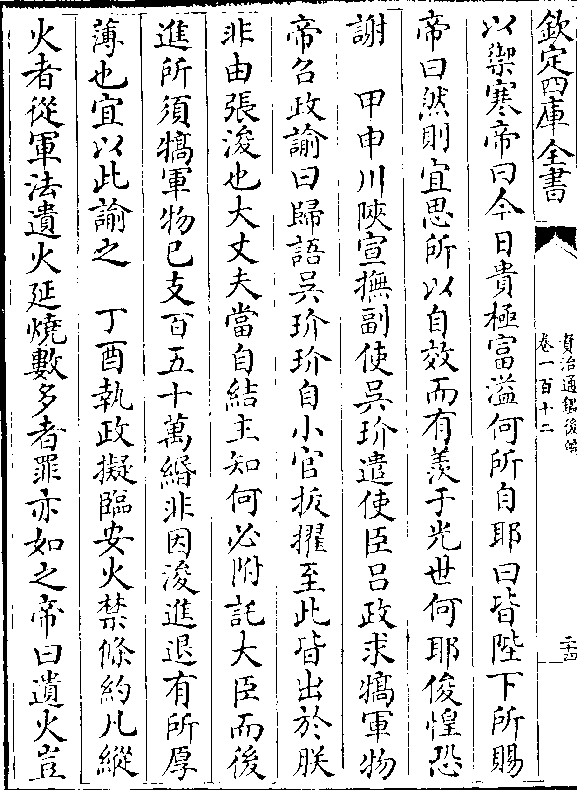 欽定四庫全書
資治通鑑後編
卷一百十二
二十四
以禦寒帝曰今日貴極富溢何所自耶曰皆陛下所賜
帝曰然則宜思所以自效而有羨于光世何耶俊惶恐
謝　甲申川陜宣撫副使吳玠遣使臣呂政求犒軍物
帝召政諭曰歸語吳玠玠自小官拔擢至此皆出於朕
非由張浚也大丈夫當自結主知何必附託大臣而後
進所須犒軍物已支百五十萬緡非因浚進退有所厚
薄也宜以此諭之　丁酉執政擬臨安火禁條約凡縱
火者從軍法遺火延燒數多者罪亦如之帝曰遺火豈